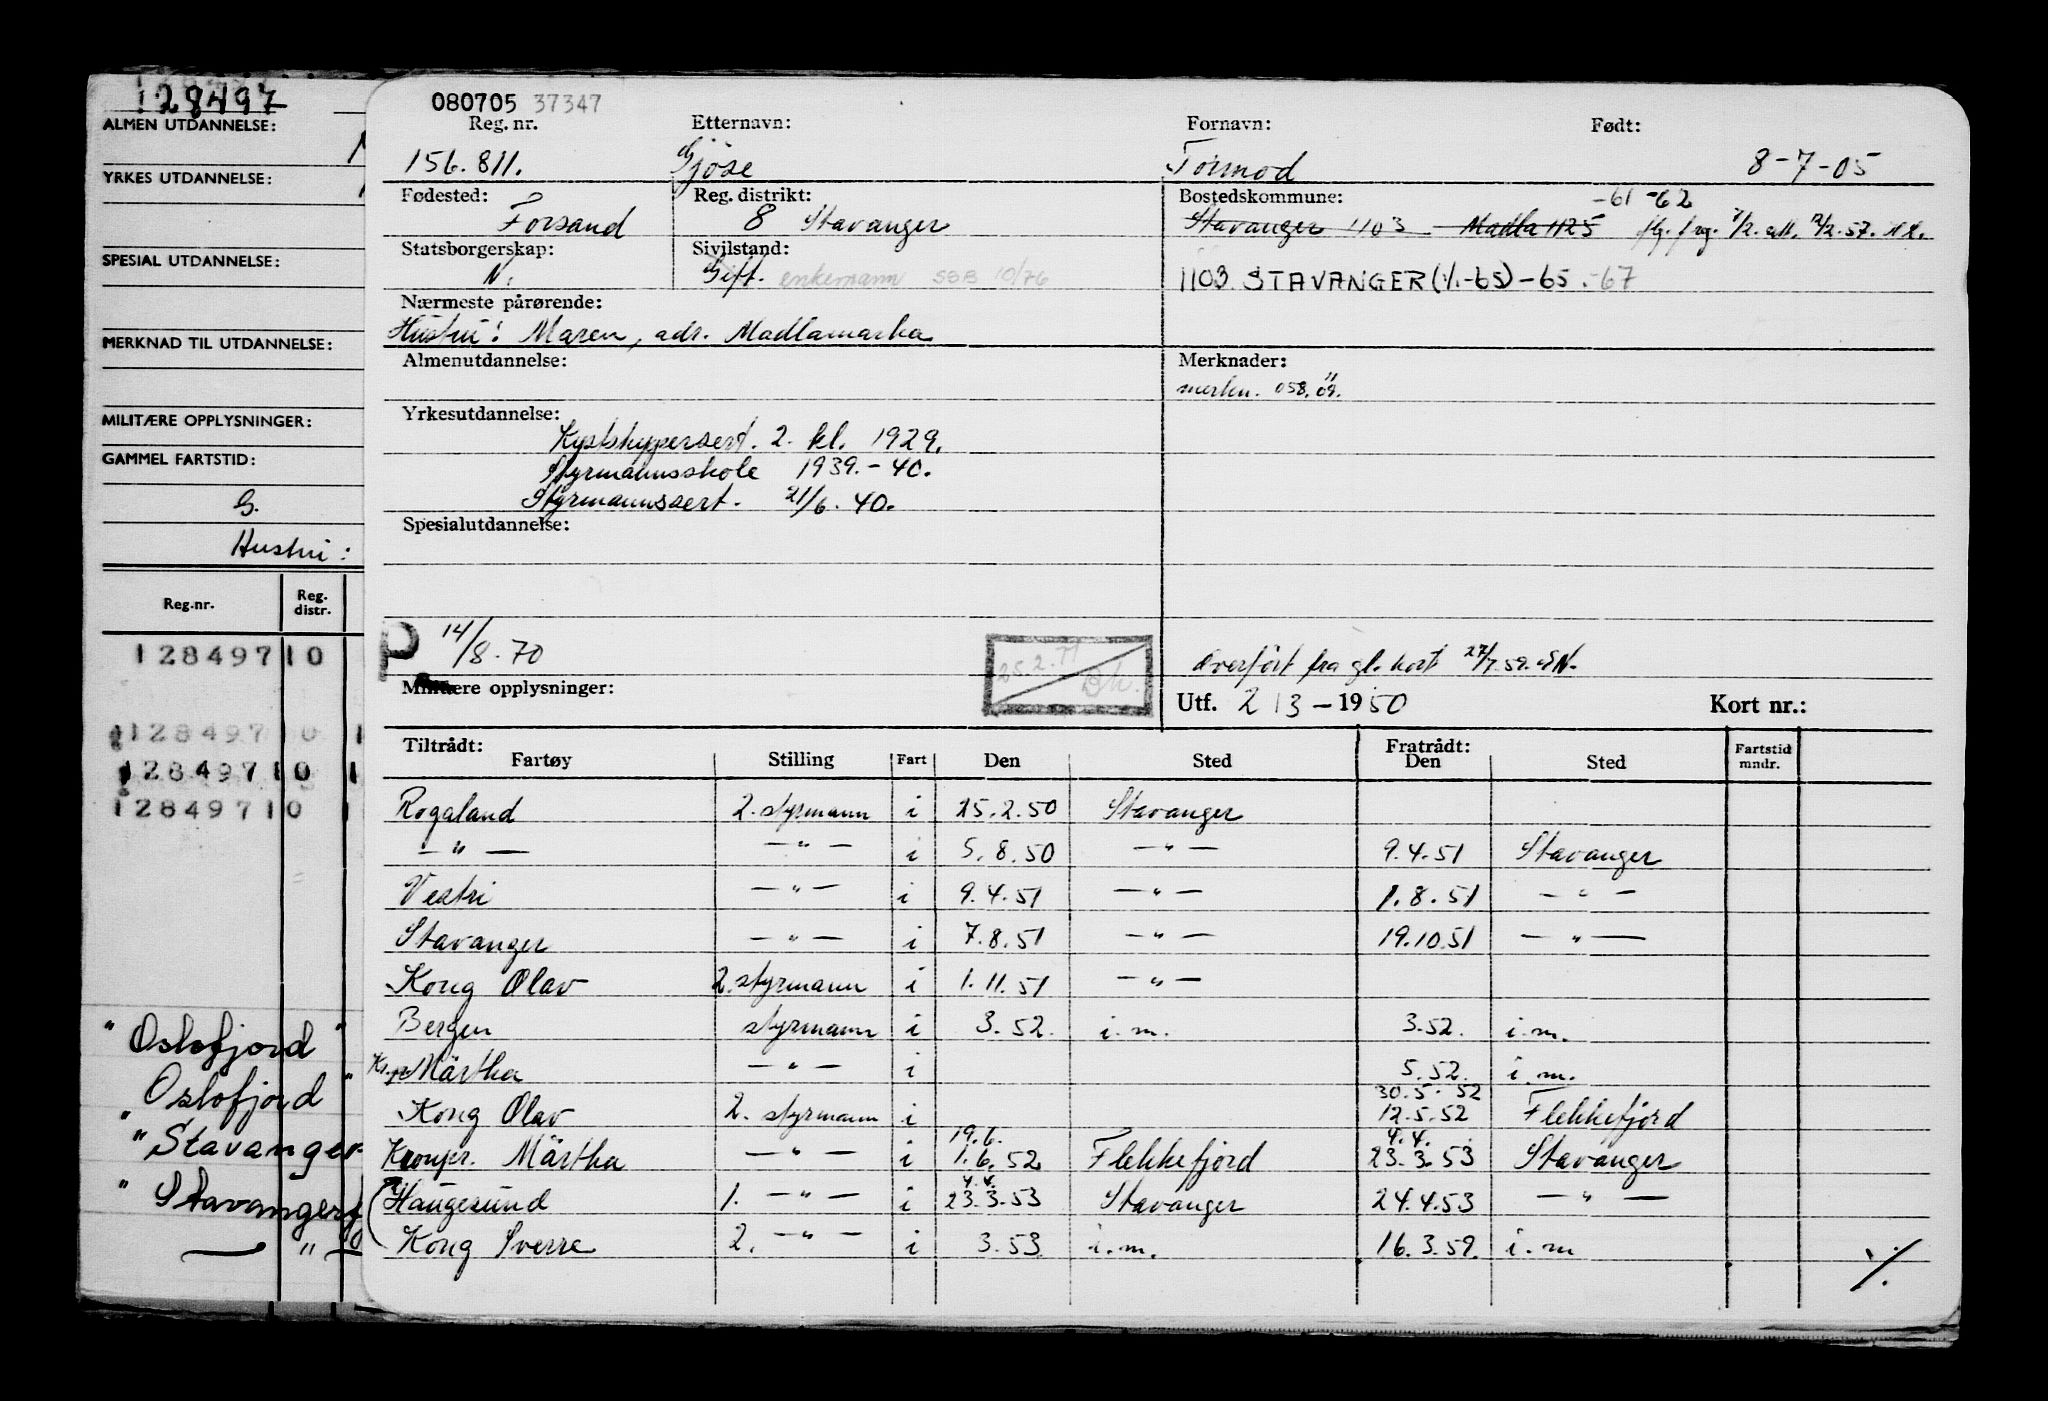 128497
ALMEN UTDANNELSE:
YRKES UTDANNELSE:
SPESIAL UTDANNELSE:
MERKNAD TIL UTDANNELSE:
MILITÆRE OPPLYSNINGER:
GAMMEL FARTSTID:
G.
Hustru:
Reg.nr. Reg. distr.
128497 10
128497 10 1
128497 10 1
128497 10 1
"Oslofjord"
Oslofjord"
"Stavanger
"Stavangerfj
— " —
080705 37347
Reg. nr. Etternavn: Fornavn: Født:
156.811. Gjöse Tormod 8-7-05
Fødested: Reg. distrikt: Bostedskommune: -61 -62
Forsand 8 Stavanger Stavanger 1103 - Madla 1125
Statsborgerskap: Sivilstand:
N. Gift. enkemann SSB 10/76 1103 STAVANGER (1/1-65) -65 -67
Nærmeste pårørende:
Hustru: Maren, adr. Madlamarka
Almenutdannelse: Merknader:
merkn. 058.
Yrkesutdannelse:
Kystskippersert. 2. kl. 1929.
Styrmannsskole 1939.-40.
Styrmannssert. 21/6.40.
Spesialutdannelse:
P 14/8.70 25.2.71 Overført fra gl. kort 27/7.59.
Militære opplysninger: Utf. 2/3-1950 Kort nr.:
Tiltrådt: Fratrådt: Fartstid
Fartøy Stilling Fart Den Sted Den Sted mndr.
Rogaland 2. styrmann i 25.2.50 Stavanger
— " — — " — i 5.8.50 — " — 9.4.51 Stavanger
Vestri — " — i 9.4.51 — " — 1.8.51 — " —
Stavanger — " — i 7.8.51 — " — 19.10.51 — " —
Kong Olav 2. styrmann i 1.11.51 — " —
Bergen styrmann i 3.52. i.m. 3.52. i.m.
Kr.pr Märtha — " — i 5.52. i.m.
30.5.52
Kong Olav 2. styrmann i 12.5.52 Flekkefjord
19.6. 4.4.
Kronpr. Märtha — " — i 1.6.52 Flekkefjord 23.3.53 Stavanger
4.4.
Haugesund 1. — " — i 23.3.53 Stavanger 24.4.53 — " —
Kong Sverre 2. — " — i 3.53 i.m. 16.3.59. i.m
./.